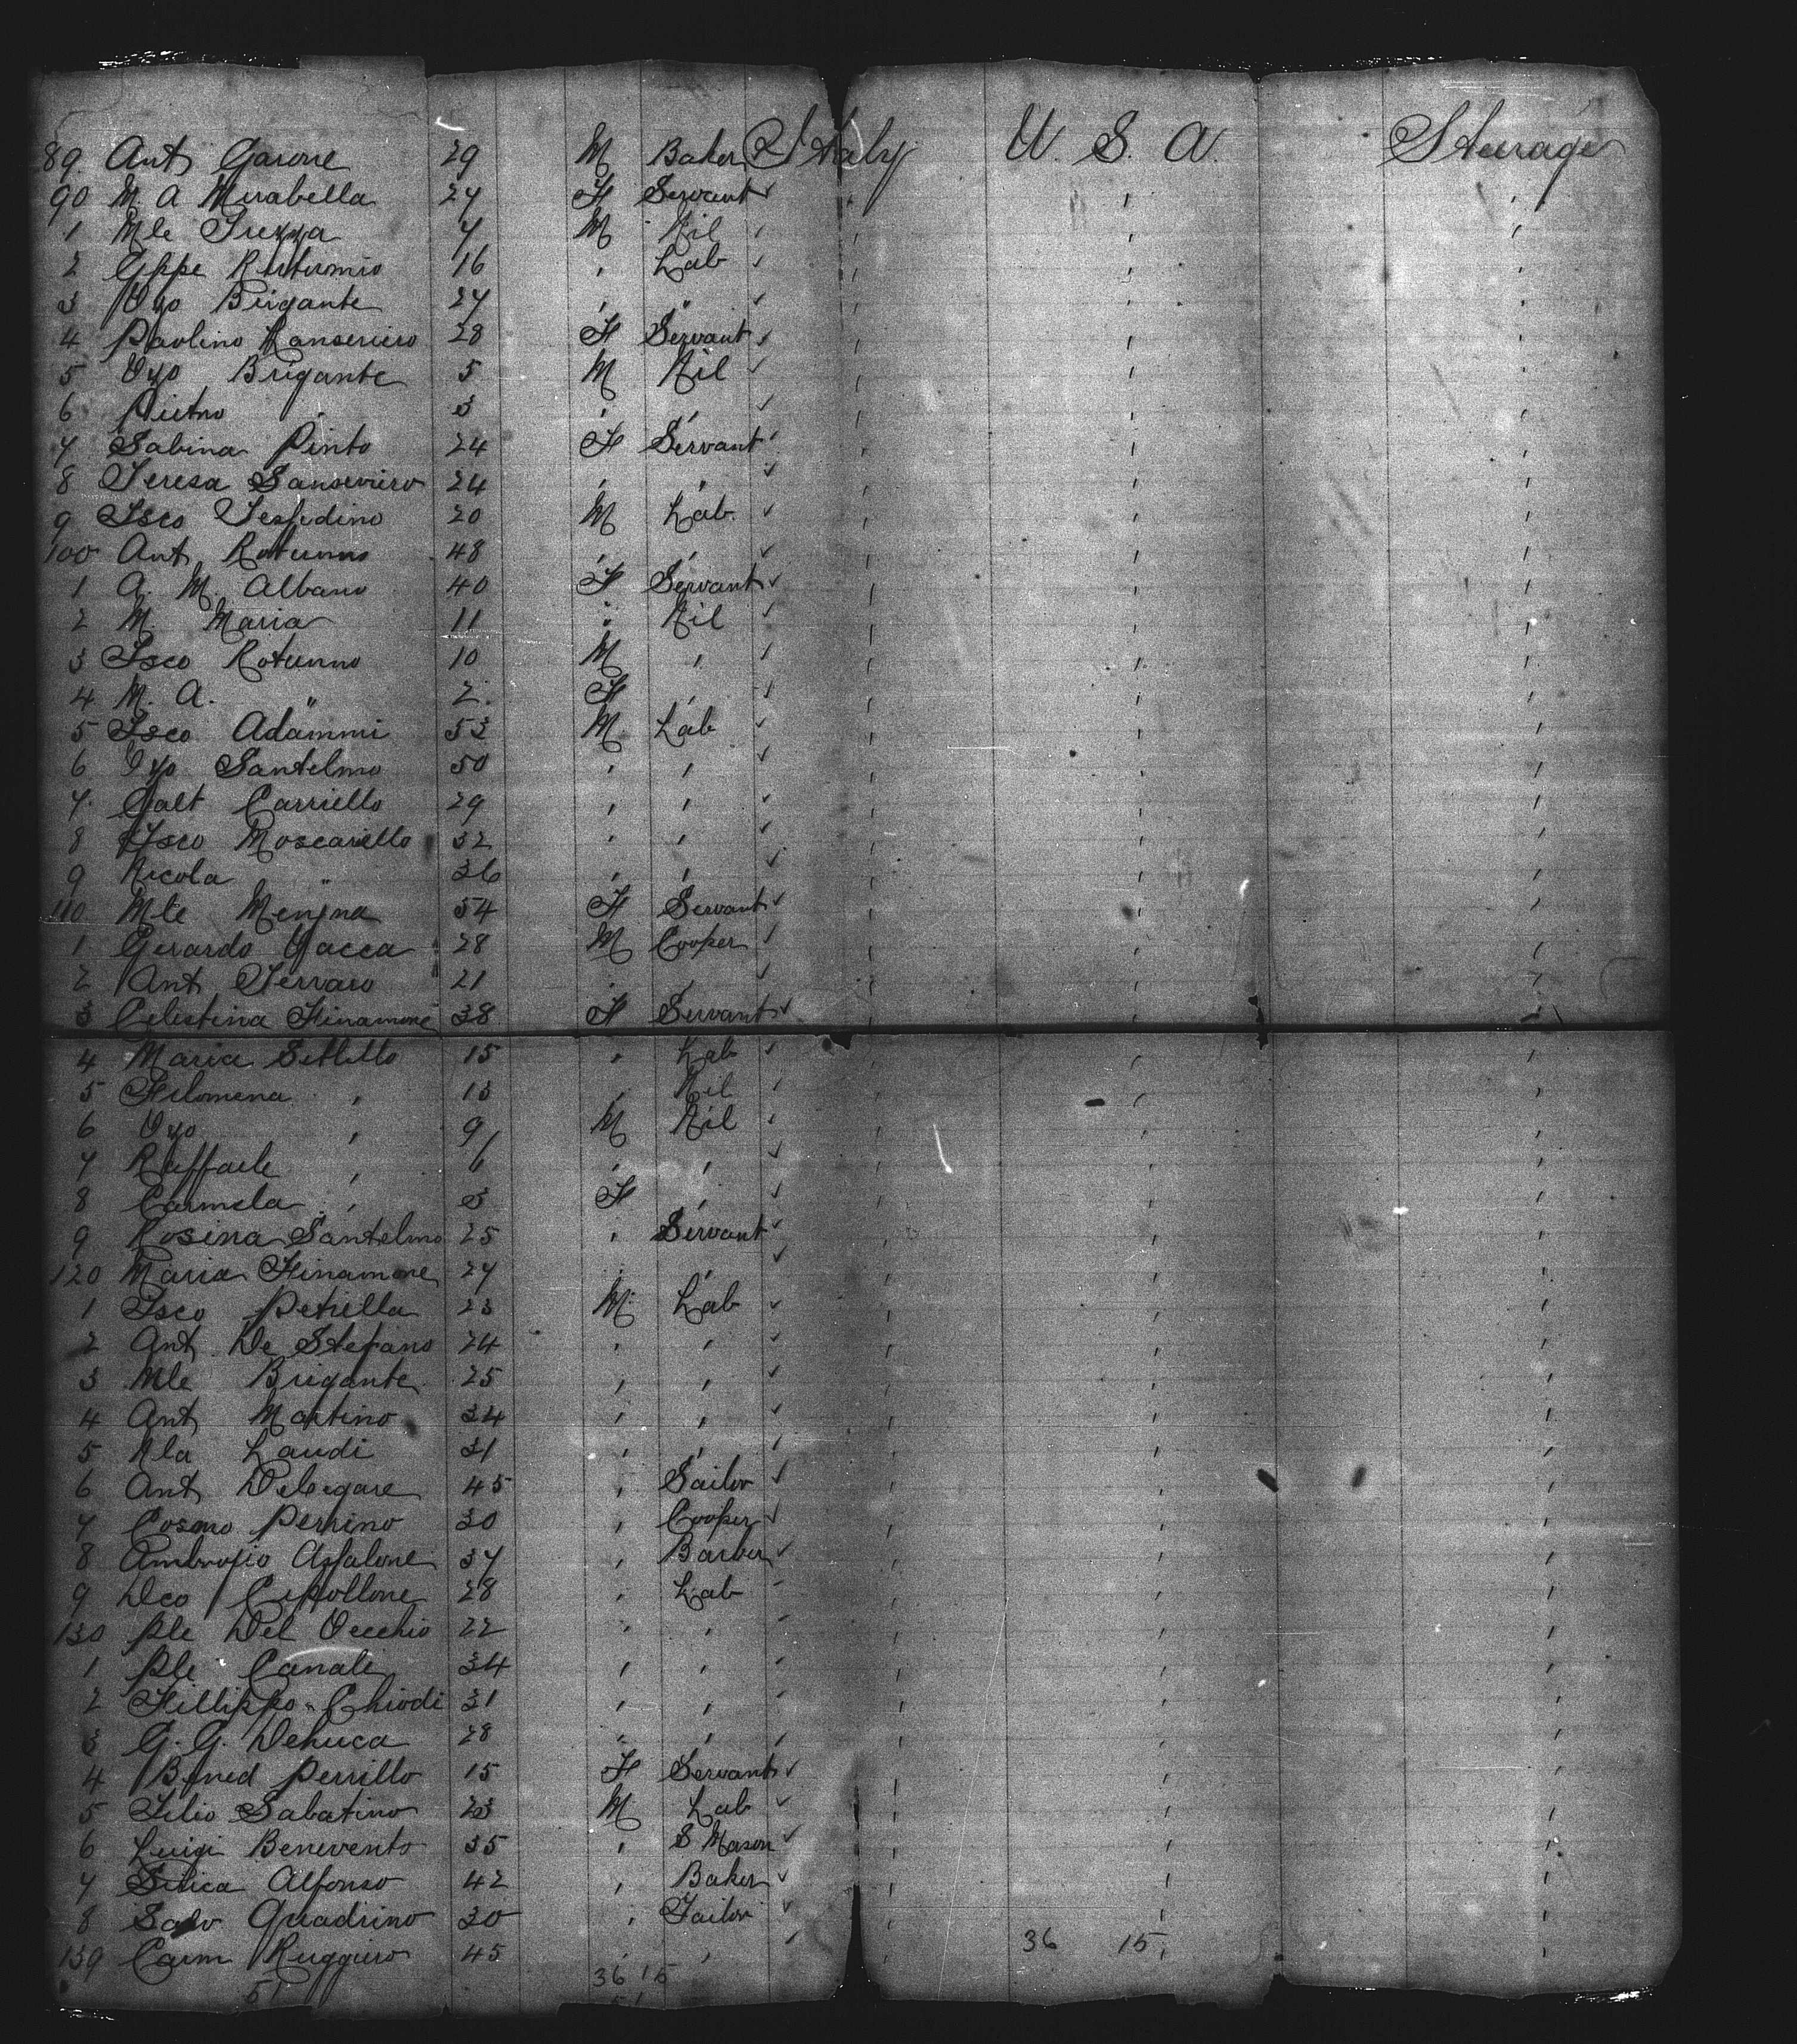 89. Ant Garone 29 M Baker Italy U. S. A. Steerage
90 M. A Mirabella 24 F Servant
1 Mle Frezza 4 M Nil
2 Gppe 16 " Lab
3 Vzo Brigante 27 " "
4 Paolino 28 F Servant
5 Vzo Brigante 5 M Nil
6 Pietro " 3 " "
7 Sabina Pinto 24 F Servant
8 Teresa Sanseviero 24 " "
9 Fsco 20 M Lab.
100 Ant Rotunno 48 " "
1 A. M. Albano 40 F Servant
2 M. Maria 11 " Nil
3 Fsco Rotunno 10 M "
4 M. A. " 2. F "
5 Fsco Adammi 53 M Lab
6 Vzo Santelmo 50 " "
7. Carriello 29 " "
8 Fsco Moscariello 32 " "
9 Nicola " 36 " "
110 Mle 54 F Servant
1 Gerardo Vacca 28 M Cooper
2 Ant Ferraro 21 " "
3 Celestina Finamore 38 F Servant
4 Maria 15 " Lab
5 Filomena " 13 " Nil
6 Vzo " 9 M Nil
7 Raffaele " 6 " "
8 Carmela " 3 F "
9 Rosina Santelmo 25 " Servant
120 Maria Finamore 27 " "
1 Fsco Petrella 23 M Lab
2 Ant De Stefano 24 " "
3 Mle Brigante 25 " "
4 Ant Martino 34 " "
5 Nla Laudi 31 " "
6 Ant Delegare 45 " Sailor
7 Cosmo Perrino 30 " Cooper
8 Ambrosio Asfalone 37 " Barber
9 Dco Cipollone 28 " Lab
130 Ple Del Vecchio 22 " "
1 Ple Canale 34 " "
2 Fillippo Chiodi 31 " "
3 G. G. DeLuca 28 " "
4 Bened Perrillo 15 F Servant
5 Filio Sabatino 23 M Lab
6 Luigi Benevento 35 " S Mason
7 Alfonso 42 " Baker
8 Salv Quadrino 30 " Tailor
139 Carm Ruggiero 45 " "
36 15
51 36 15
51